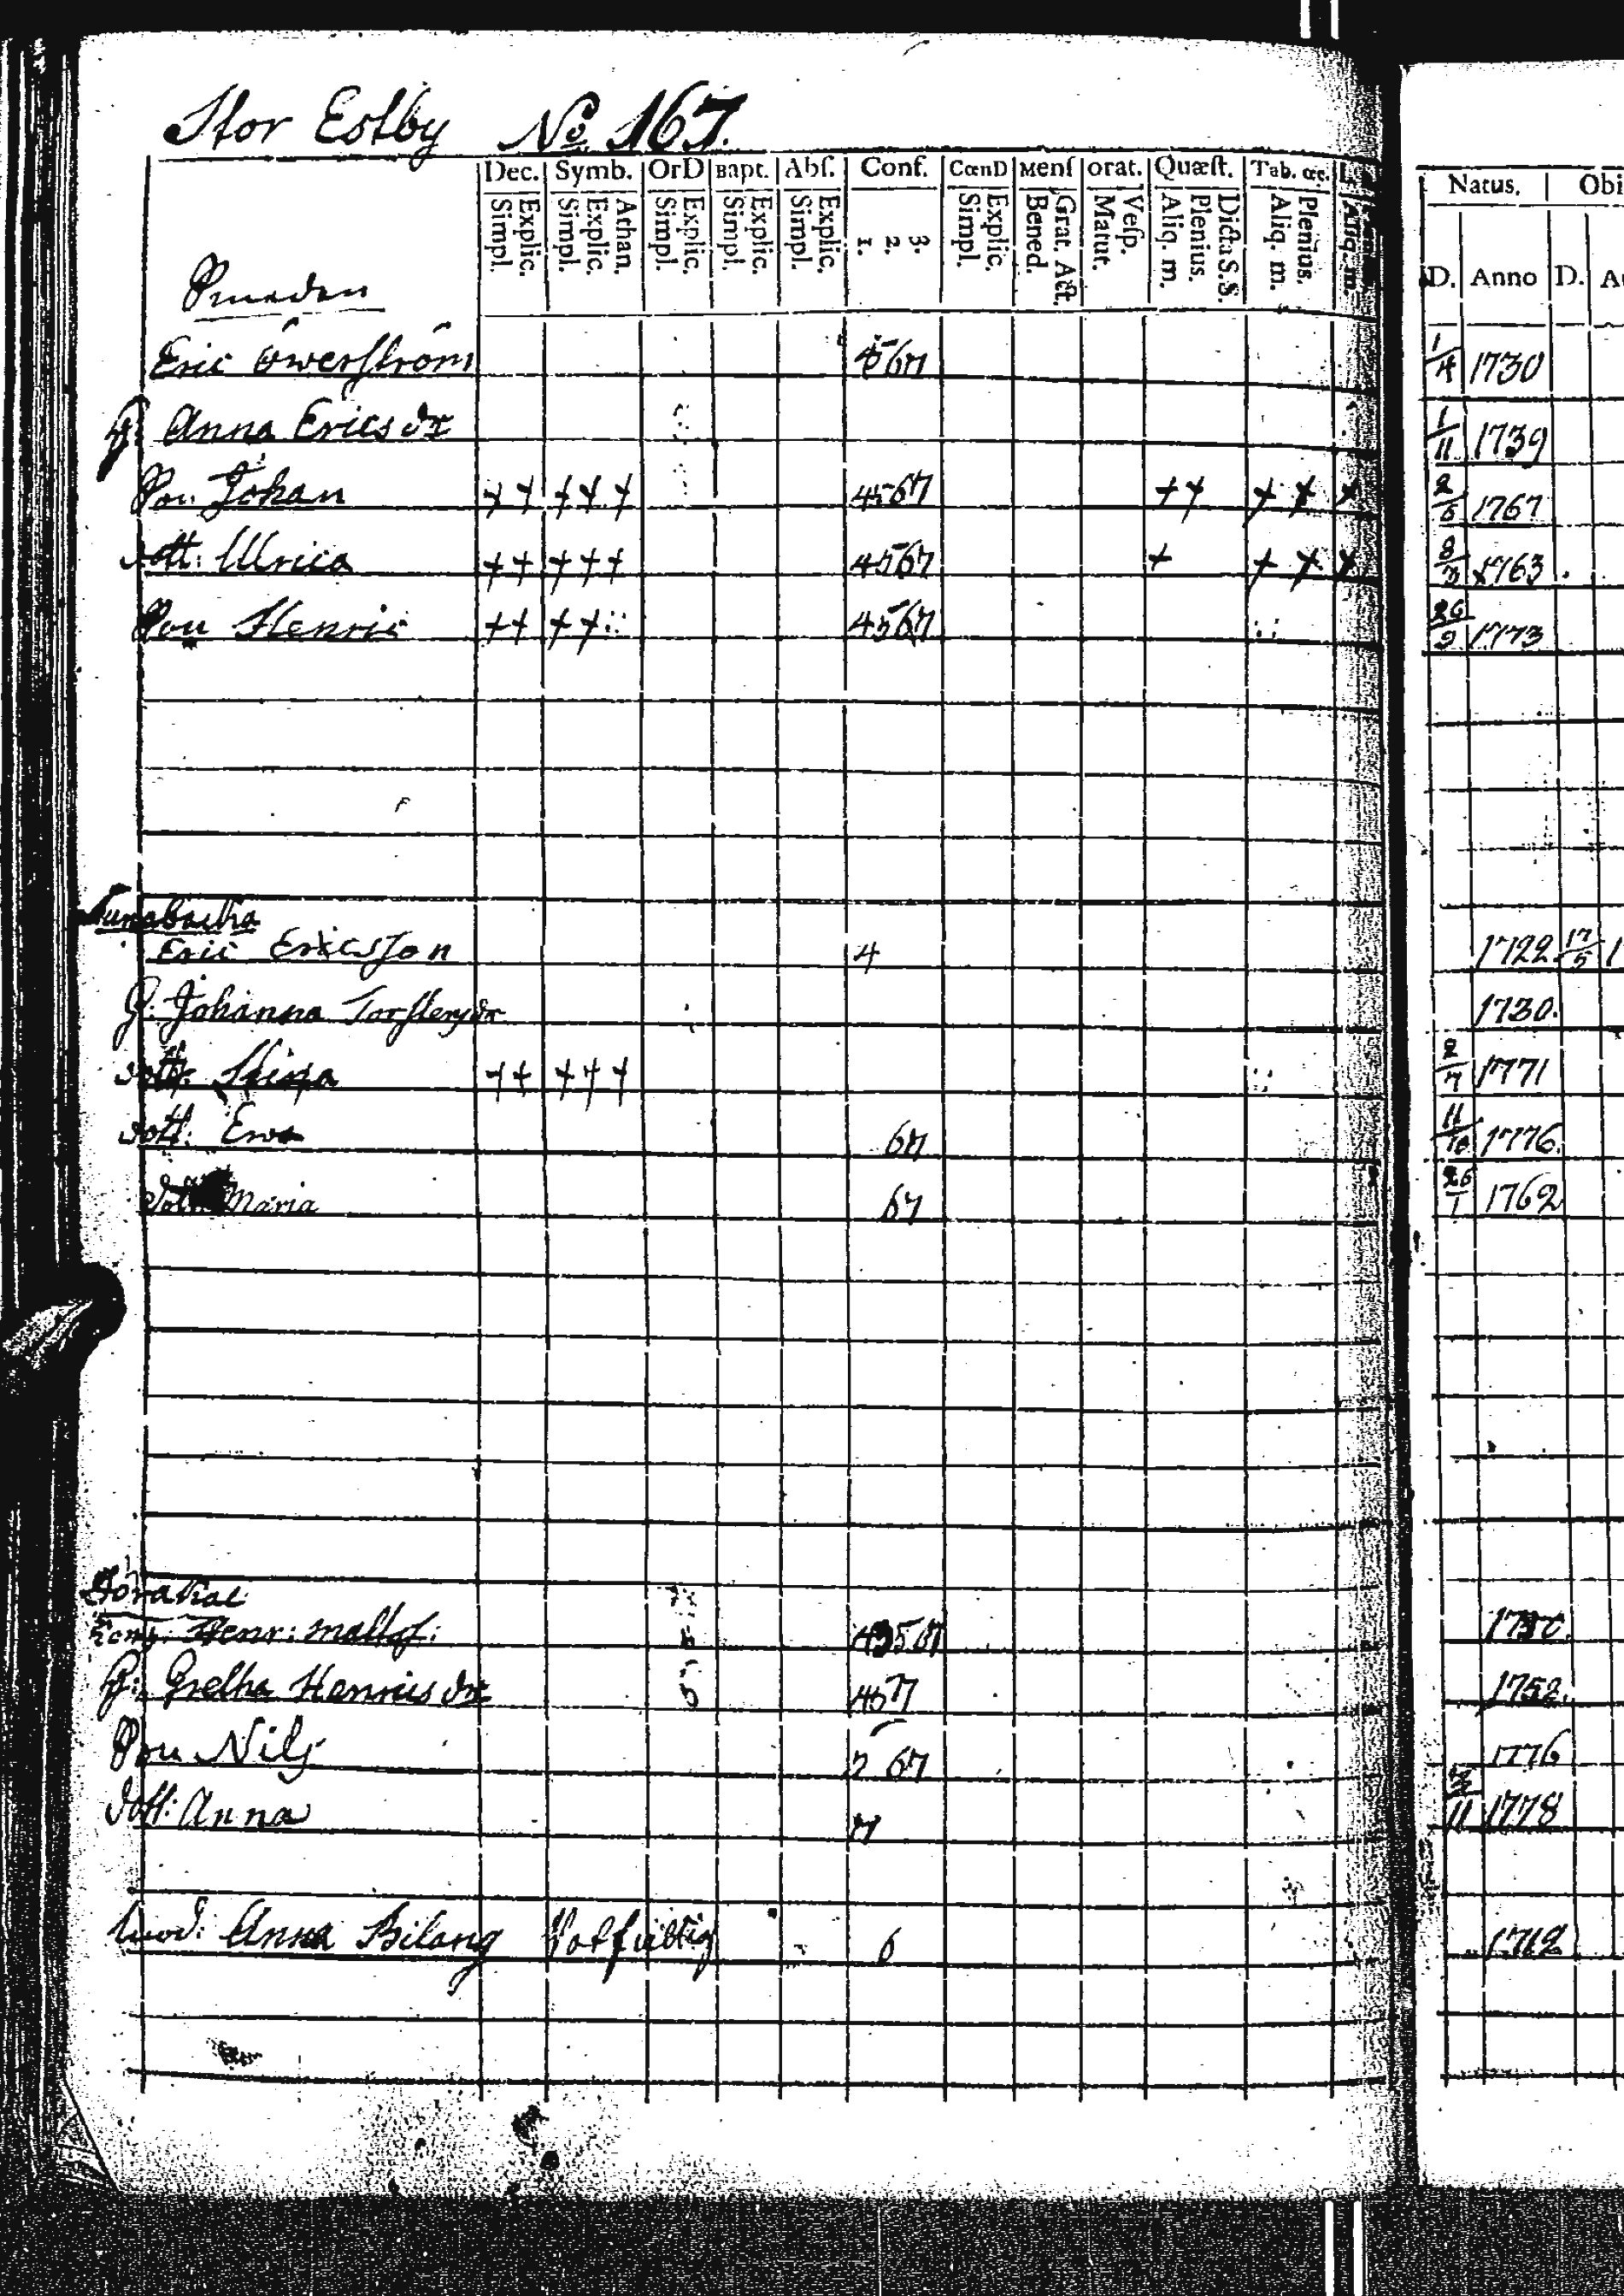 Stor Estby No. 167.
Dec. Symb. OrD Bapt. Abſ. Conf. CœnD Menſ orat. Quæſt. Tab. œc. Natus. Obi
Explic. Simpl. Athan. Explic. Simpl. Explic. Simpl. Explic. Simpl. Explic. Simpl. 3. 2. 1. Explic. Simpl. Grat. Act. Bened. Veſp. Matut. Dicta S.S. Plenius. Aliq. m. Plenius. Aliq. m. Aliq. m. D. Anno D.
Eric Öwerström 4567 1/4 1730
Anna Ericsdr 1/11 1739
Johan ++ +++ 4567 ++ ++ + 2/6 1767
dott: Ulrica ++ +++ 4567 + ++ + 8/3 1763.
Henric ++ ++ 4567 26/9 1773
Eric Ericsson 4 1722 17/5 1
Johanna 1730.
dott: Stina ++ +++ 2/7 1771
dott: Ewa 67 11/10 1776.
Maria 67 26/1 1762
Henr:
Gretha Henricsdr 457 1752.
Nils 67 1776
dott: Anna 7 11 1778
Anna Bilang 6 1712